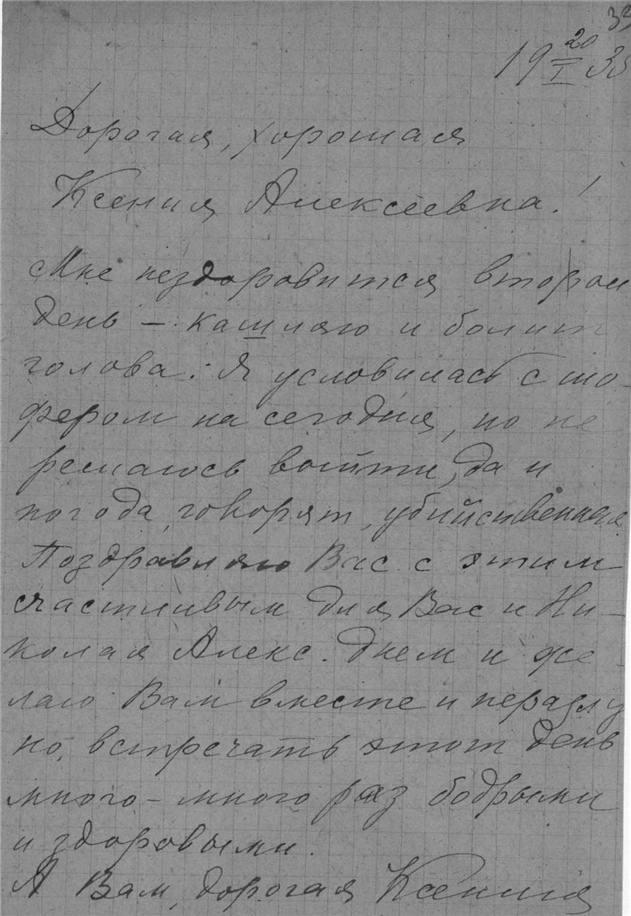 33
19 20/I 35
Дорогая, хорошая
Ксения Алексеевна!
Мне нездоровится второй
день – кашляю и болит
голова. Я условилась с шо-
фером на сегодня, но не
решаюсь выйти, да и
погода, говорят, убийственная.
Поздравляю Вас с этим
счастливым для Вас и Ни-
колая Алекс. днем и же-
лаю Вам вместе и неразлу
но встречать этот день
много-много раз бодрыми
и здоровыми.
А Вам, дорогая Ксения